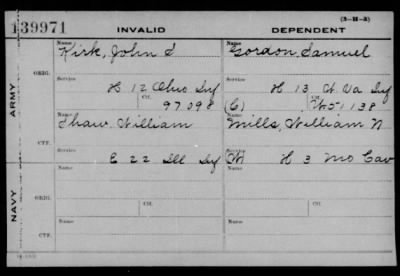 (3-H-3)
139971 INVALID DEPENDENT
ARMY
NAVY
ORIG.
Name Kirk, John S Name Gordon, Samuel
Service H 12 Ohio Inf Service H 13 W. Va Inf
Ctf. 97098 (C) Ctf. 138
CTF.
Name Shaw, William Name Mills, William N
Service E 22 Ill Inf Service (W) H 3 Mo Cav
ORIG.
Name Name
Service Ctf. Service Ctf.
CTF.
Name Name
Service Service